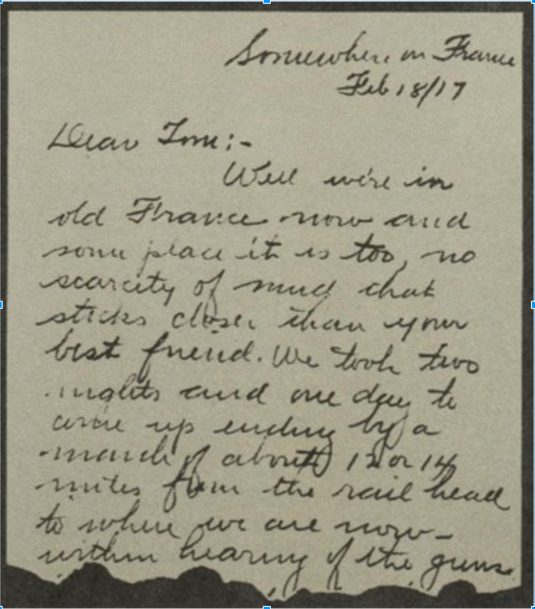 Somewhere in France
Feb 18/17
Dear Tom:-
Well we're in
old France now and
some place it is too, no
scarcity of mud that
sticks closer than your
best friend. We took two
nights and one day to
come up ending by a
march of about 12 or 14
miles from the rail head
to where we are now-
within hearing of the guns.